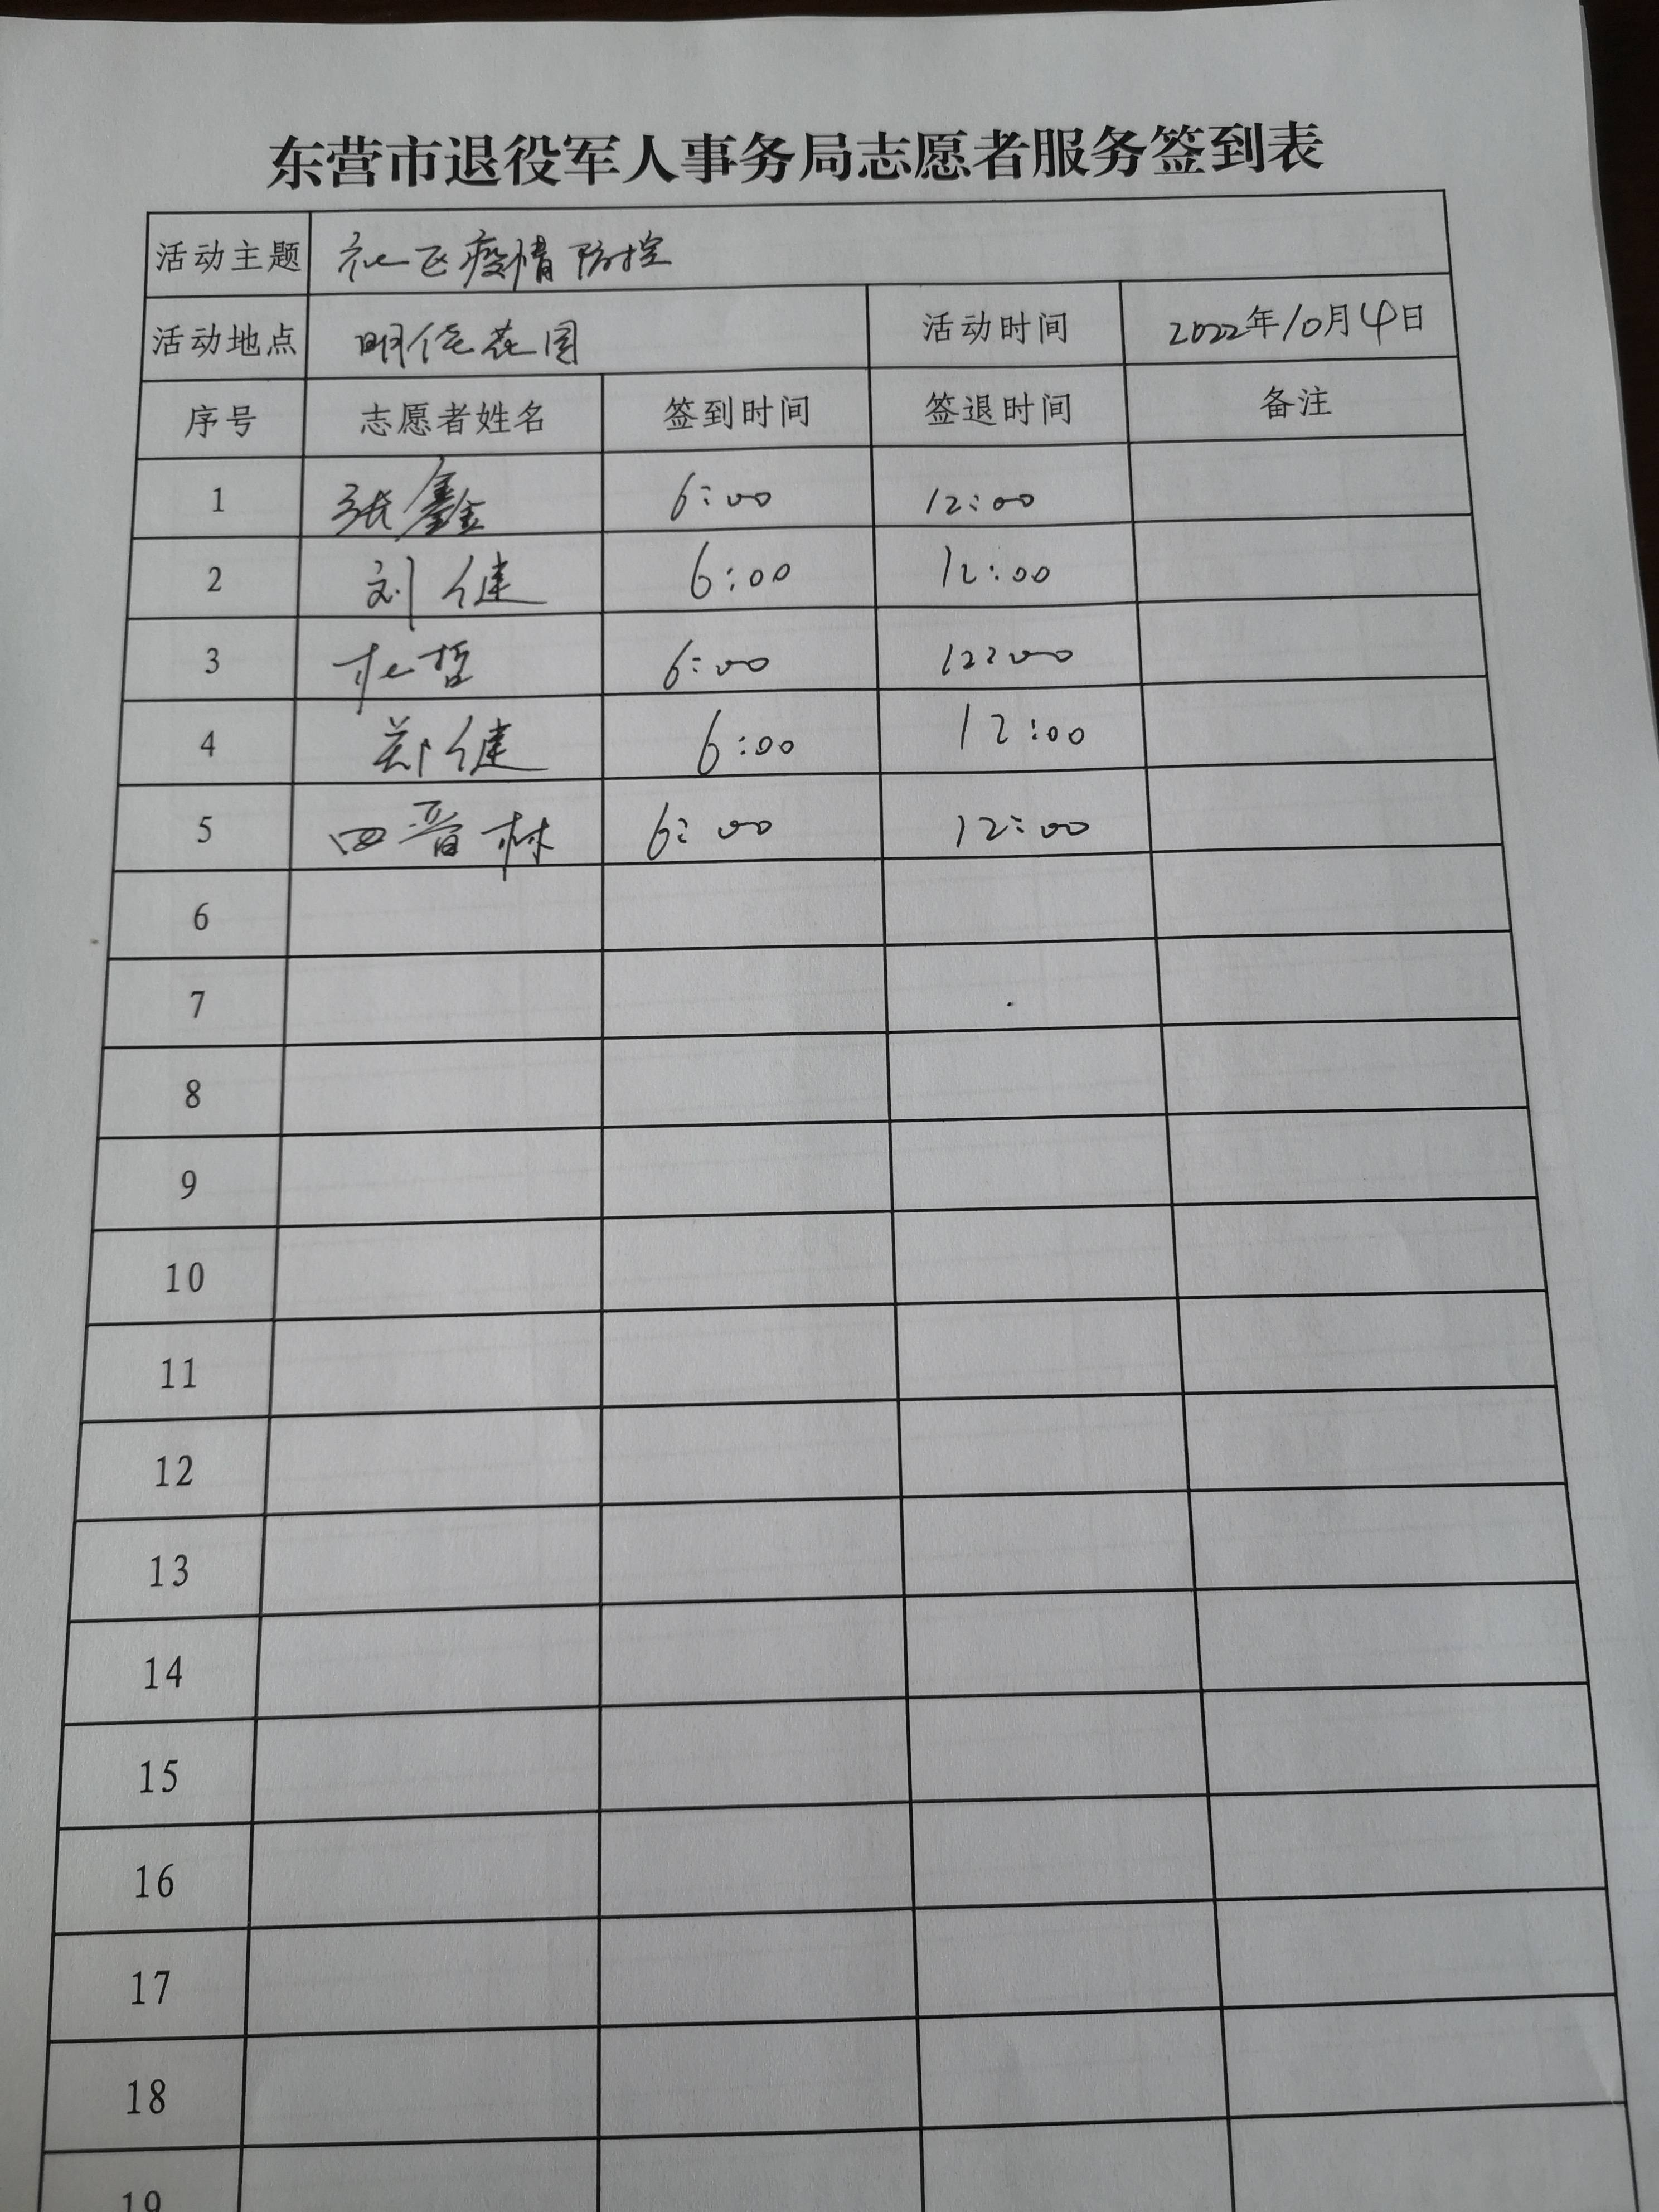 东营市退役军人事务局志愿者服务签到表
活动主题 社区疫情防控
活动地点 明佳花园 活动时间 2022年10月4日
序号 志愿者姓名 签到时间 签退时间 备注
1 张鑫 6:00 12:00
2 刘健 6:00 12:00
3 杜哲 6:00 12:00
4 郑健 6:00 12:00
5 田晋林 6:00 12:00
6
7
8
9
10
11
12
13
14
15
16
17
18
19